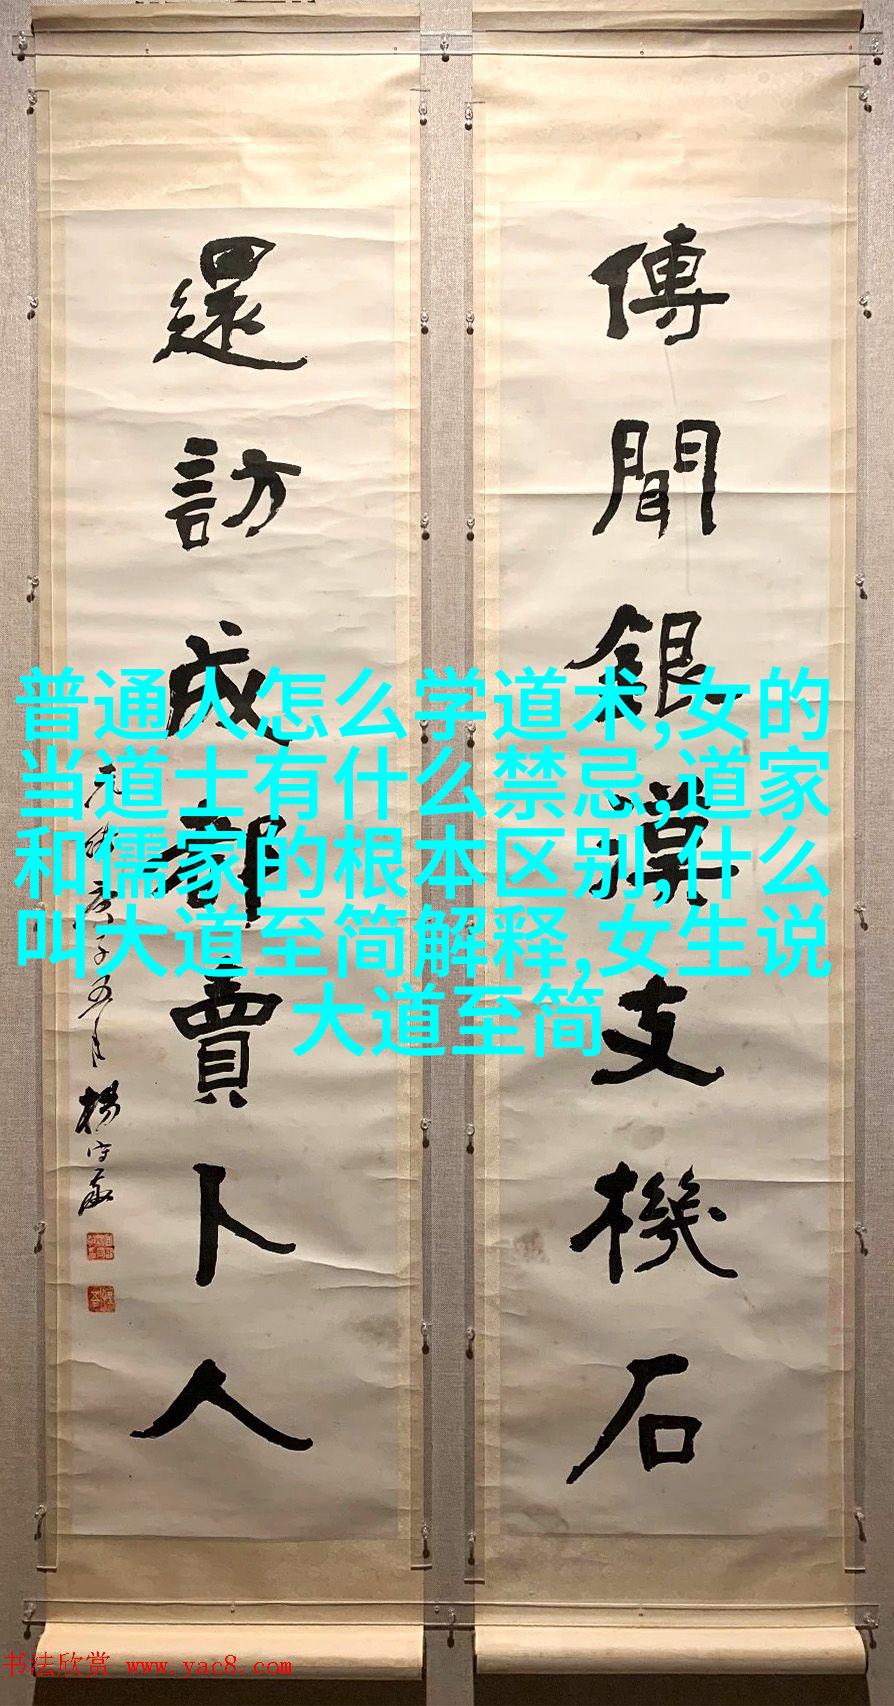 傳聞銀漢支機石
還訪成都賣卜人
光緒庚子五月 楊守敬
普通人怎么学道术,女的
当道士有什么禁忌,道家
和儒家的根本区别,什么
叫大道至简解释,女生说
大道至简
书法欣赏 www.yac8.com